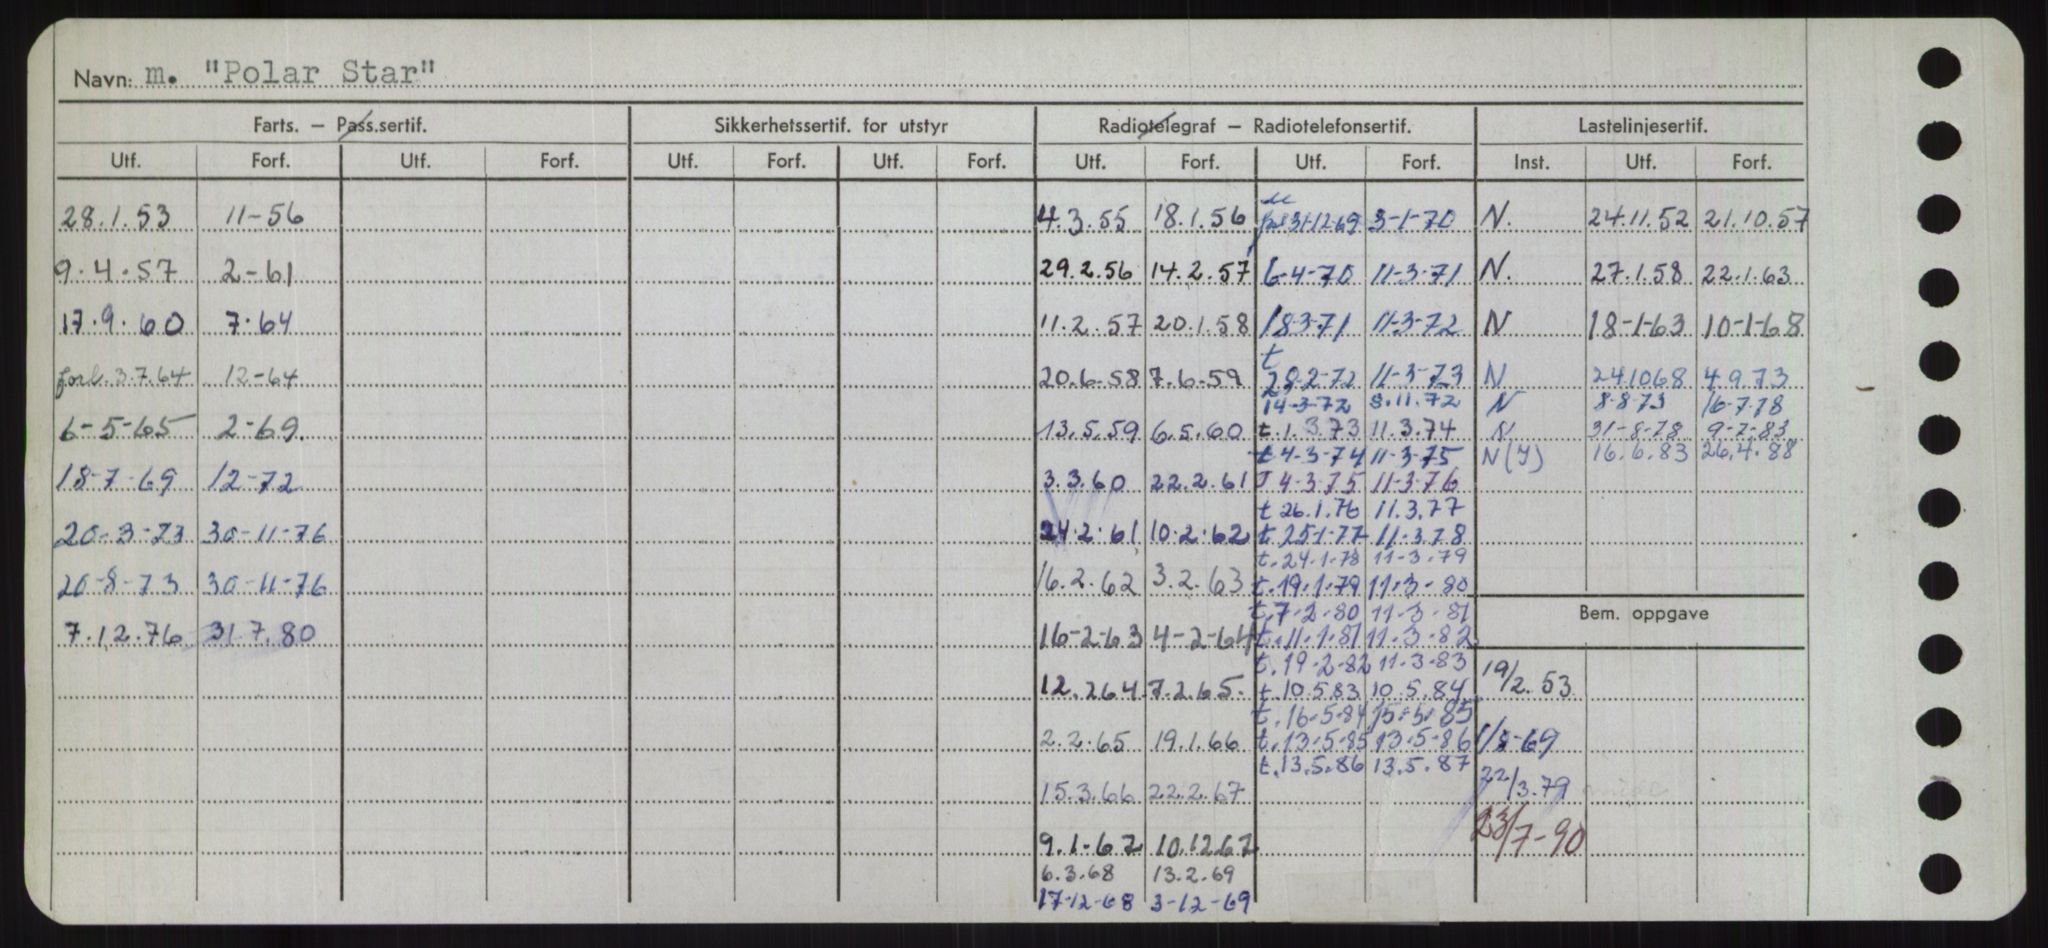 Navn: m. "Polar Star"
Farts. – Pass.sertif. Sikkerhetssertif. for utstyr Radiotelegraf – Radiotelefonsertif. Lastelinjesertif.
Utf. Forf. Utf. Forf. Utf. Forf. Utf. Forf. Utf. Forf. Utf. Forf. Inst. Utf. Forf.
28.1.53 11-56 4.3.55 18.1.56 31-12-69 3-1-70 N. 24.11.52 21.10.57
9.4.57 2-61 29.2.56 14.2.57 6-4-70 11-3-71 N. 27.1.58 22.1.63
17.9.60 7.64 11.2.57 20.1.58 18-3-71 11-3-72 N 18-1-63 10-1-68
t
forl. 3.7.64 12-64 20.6-58 7.6-59 28-2-72 11-3-73 N 24.10.68 4.9.73
14-3-72 8.11.72 N 8-8-73 16-7-78
6-5-65 2-69. 13.5.59 6.5.60 t.1.3.73 11.3.74 N 31-8-78 9-7-83
t 4-3-74 11-3-75 N(Y) 16.6.83 26.4.88
18-7-69 12-72 3.3.60 22.2.61 T 4-3-75 11-3-76
t 26.1.76 11.3.77
20-3-73 30-11-76 24.2.61 10.2.62 t.25-1-77 11-3.78
t.24-1-78 11-3-79
20-8-73 30-11-76 16.2.62 3.2.63 t.19.1.79 11.3-80
t.7-2-80 11-3-81
Bem. oppgave
7.12.76 31.7.80 16-2-63 4-2-64 t.11.1.81 11-3-82
t.19-2-82 11-3-83
12.2.64 7.2.65. t.10.5.83 10.5.84 19/2.53
t.16-5-84 15-5-85
2.2.65 19.1.66 t.13-5-85 13-5-86 1/8-69
t.13.5.86 13.5.87
15.3.66 22.2.67 22/3.79
9.1.67 10.12.67 23/7-90
6.3.68 13.2.69
17-12-68 3-12-69